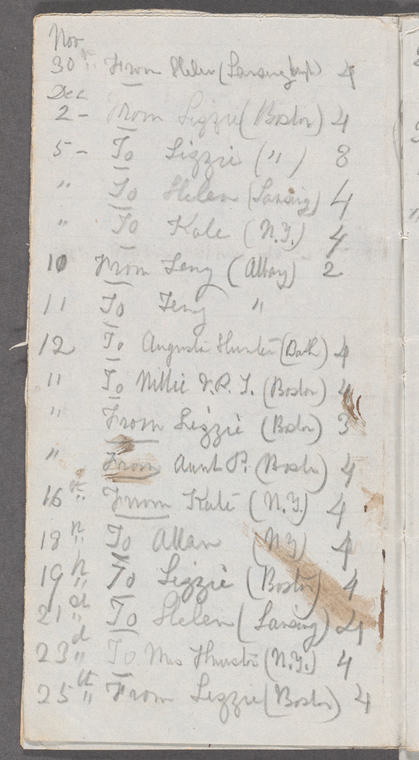 Nov
30th From Helen (Lansingburgh) 4
Dec
2 - From Lizzie (Boston) 4
5 - To Lizzie (") 8
" To Helen (Lansing) 4
" To Kate (N.Y.) 4
10 From Feny (Albany) 2
11 To Feny "
12 To Augusta Hunter (Bath) 4
" To Millie V.R.T. (Boston) 4
" From Lizzie (Boston) 3
" From Aunt P. (Boston) 4
16th " From Kate (N.Y.) 4
18 " To Allan (N.Y) 4
19 " To Lizzie (Boston) 4
21st " To Helen (Lansing) 4
23d " To Mrs Thurston (N.Y.) 4
25th " From Lizzie (Boston) 4